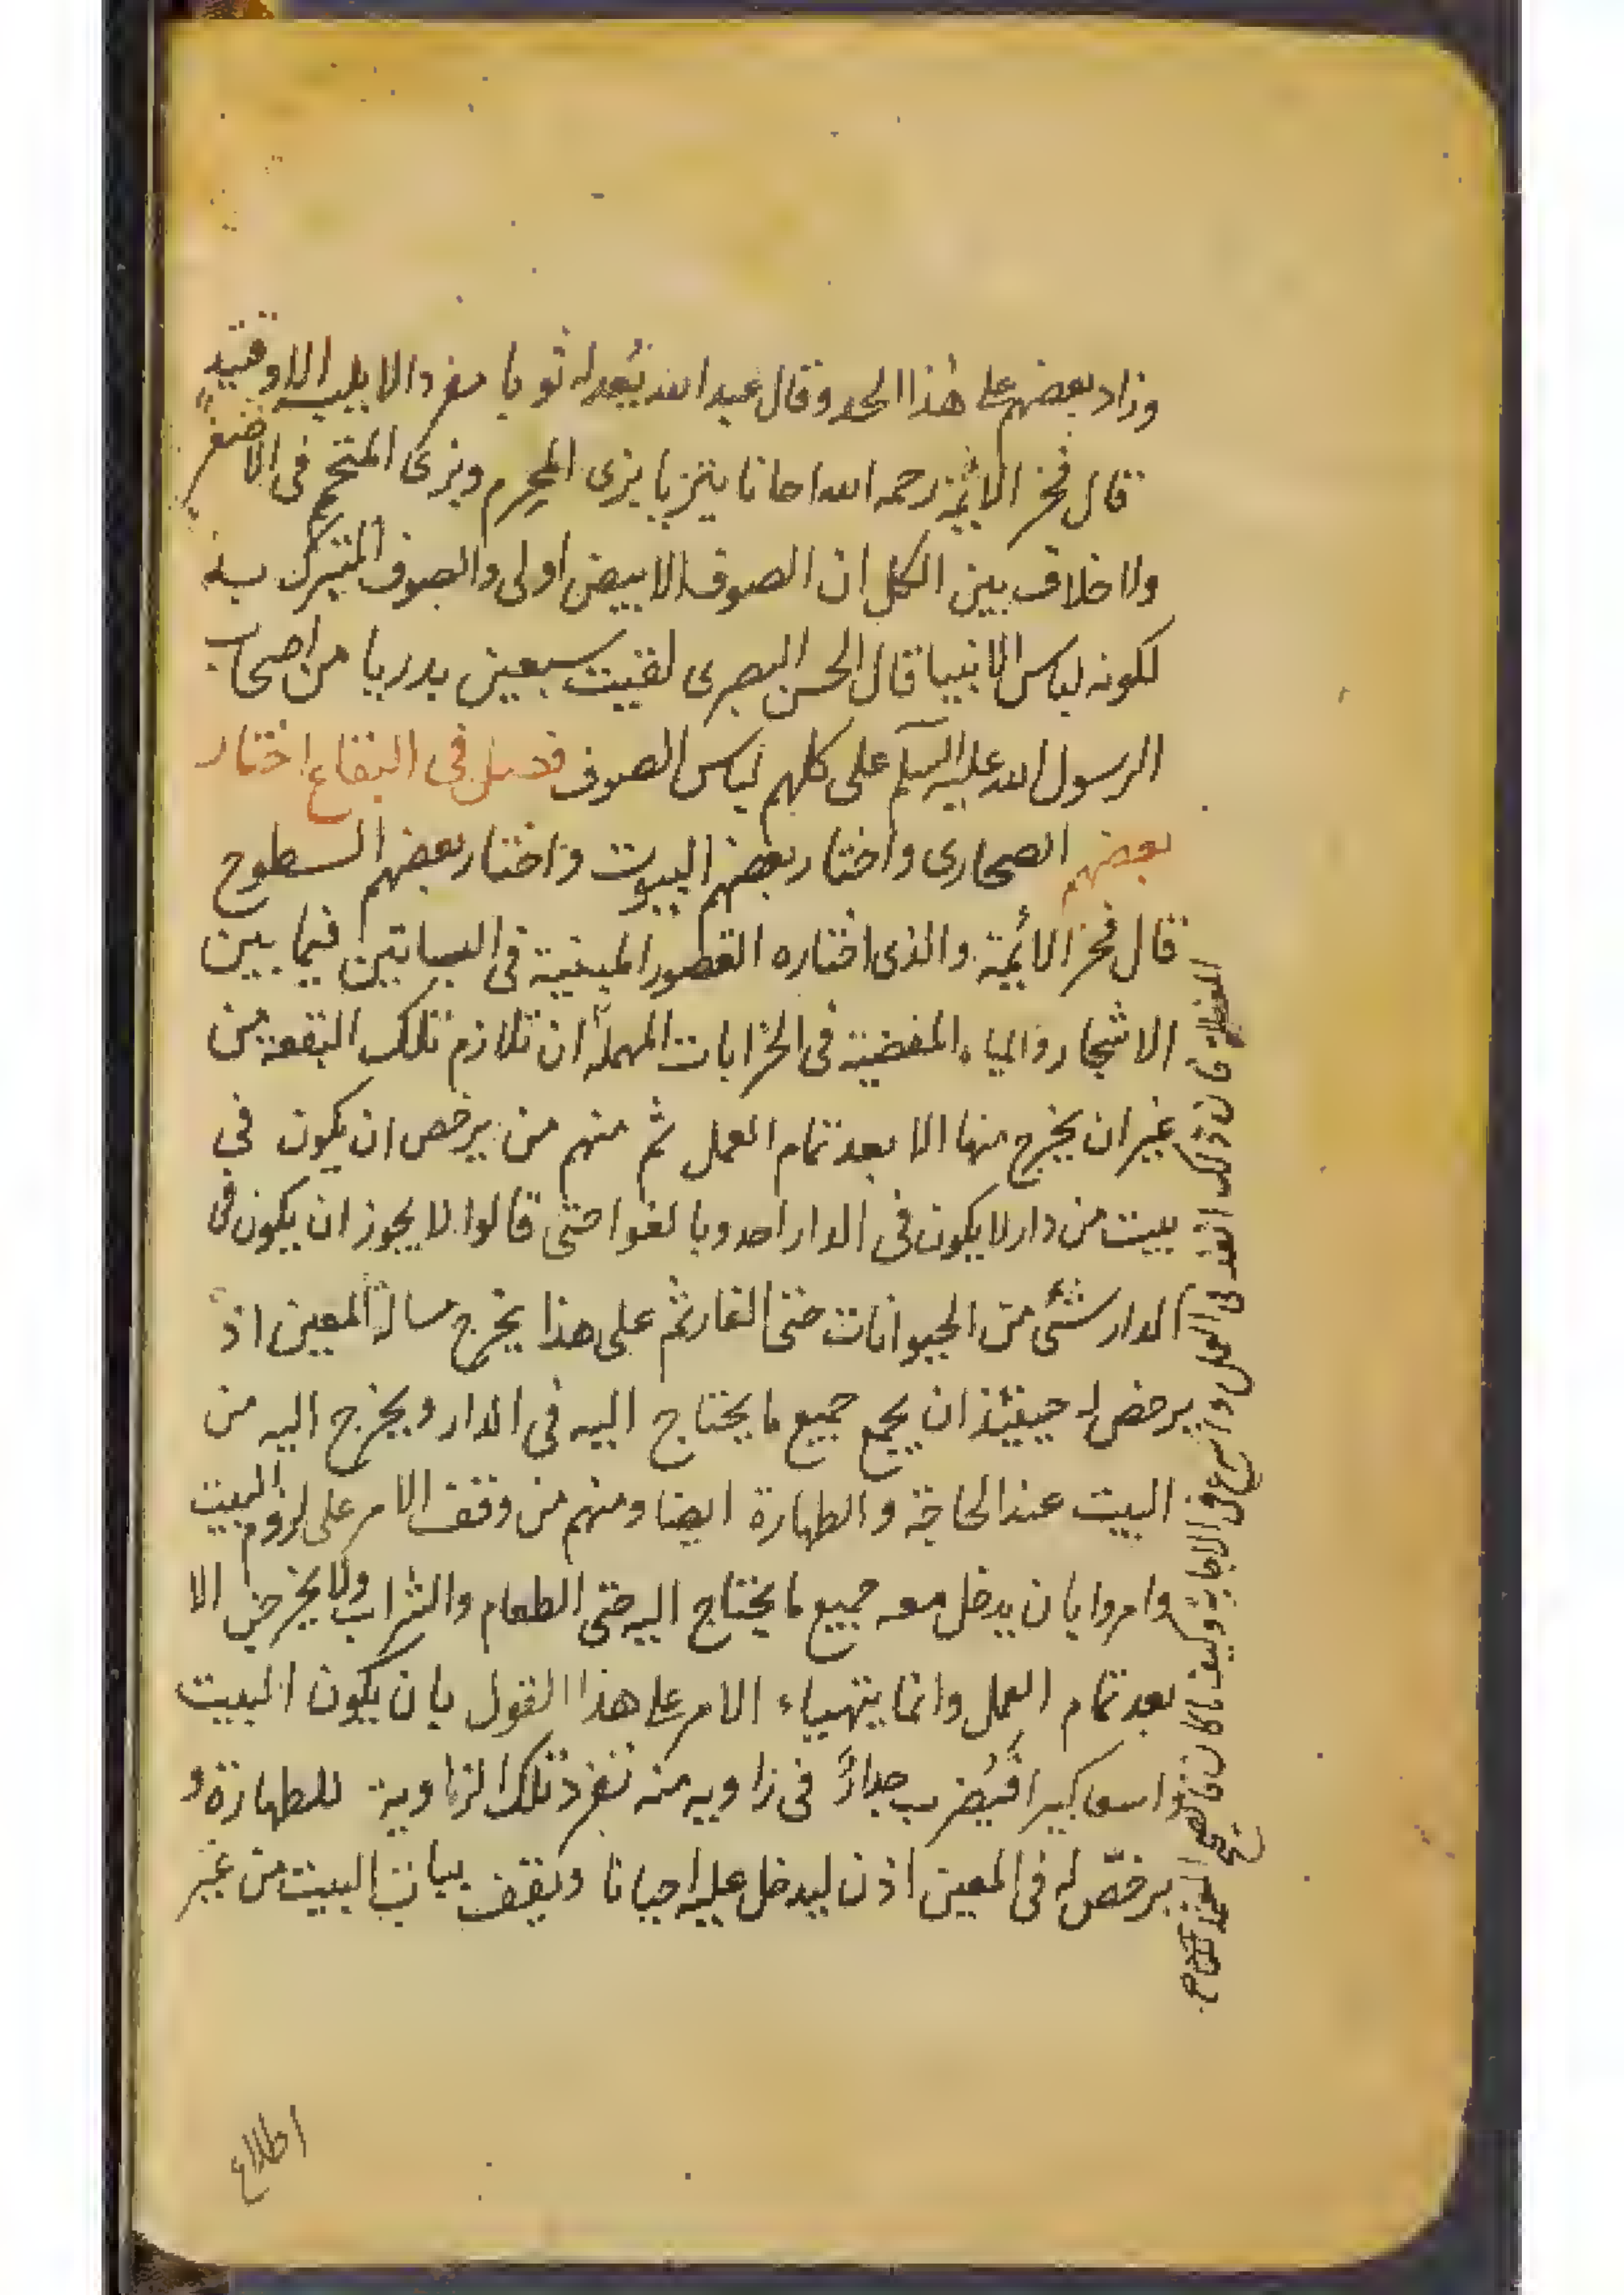 وزاد بعضهم على هذا الحد وقال عبد الله يُعد له ثوبا مفردا لا يلبسه الا وقتيذ
قال فخر الائمة رحمه الله احانا يتزيا بزى المحرم وبزى المتختم فى الاصغر
ولا خلاف بين الكل ان الصوف الابيض اولى والصوف المتبرك به
لكونه لباس الانبيا قال الحسن البصرى لقيت سبعين بدريا من اصحاب
الرسول الله عليه السلم على كلهم لباس الصوف فصل فى البقاع اختار
بعضهم الصحارى واختار بعضهم البيوت واختار بعضهم السطوح
قال فخر الائمة والذى اختاره القصور المبنية فى البساتين فيما بين
الاشجار والمياه المفضية فى الخرابات المهملة ان تلازم تلك البقعة من
غير ان يخرج منها الا بعد تمام العمل ثم منهم من يرخص ان يكون فى
بيت من دار لا يكون فى الدار احد وبالغوا حتى قالوا لا يجوز ان يكون فى
الدار شئ من الحيوانات حتى الفار ثم على هذا يخرج مسالة المعين اذ
يرخص له حينئذ ان يجمع جميع ما يحتاج اليه فى الدار ويخرج اليه من
البيت عند الحاجة والطهارة ايضا ومنهم من وقف الامر على لزوم البيت
وامروا بان يدخل معه جميع ما يحتاج اليه حتى الطعام والشراب ولا يخرجن الا
بعد تمام العمل وانما يتهياء الامر على هذا القول بان يكون البيت
واسعا كبيرا فيُضرب جدارً فى زاويه منه تفرد تلك الزاوية للطهارة و
يرخّص له فى المعين اذن ليدخل عليه احيانا ويقف بباب البيت من غير
فان ذلك اشد فى العمل واسرع فى الاجابة وكيف ما كان
اطلاع